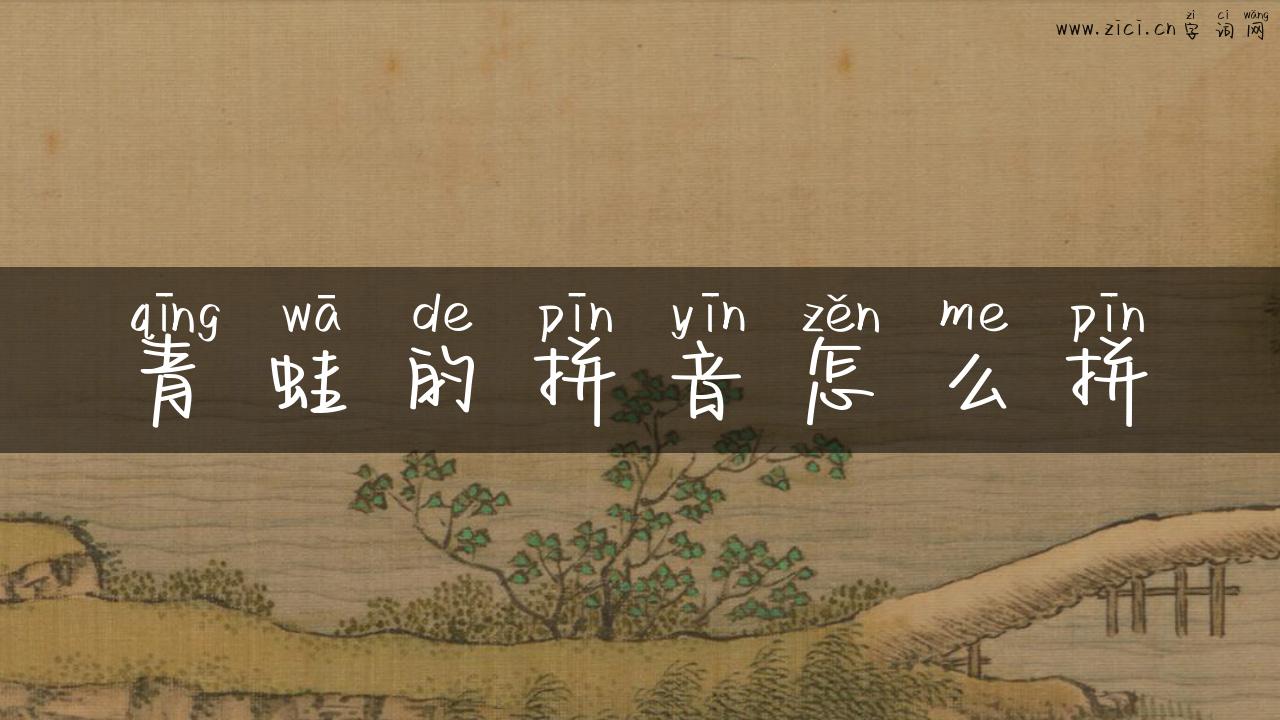 zì cí wǎng
www.zici.cn 字 词 网
qīng wā de pīn yīn zěn me pīn
青 蛙 的 拼 音 怎 么 拼